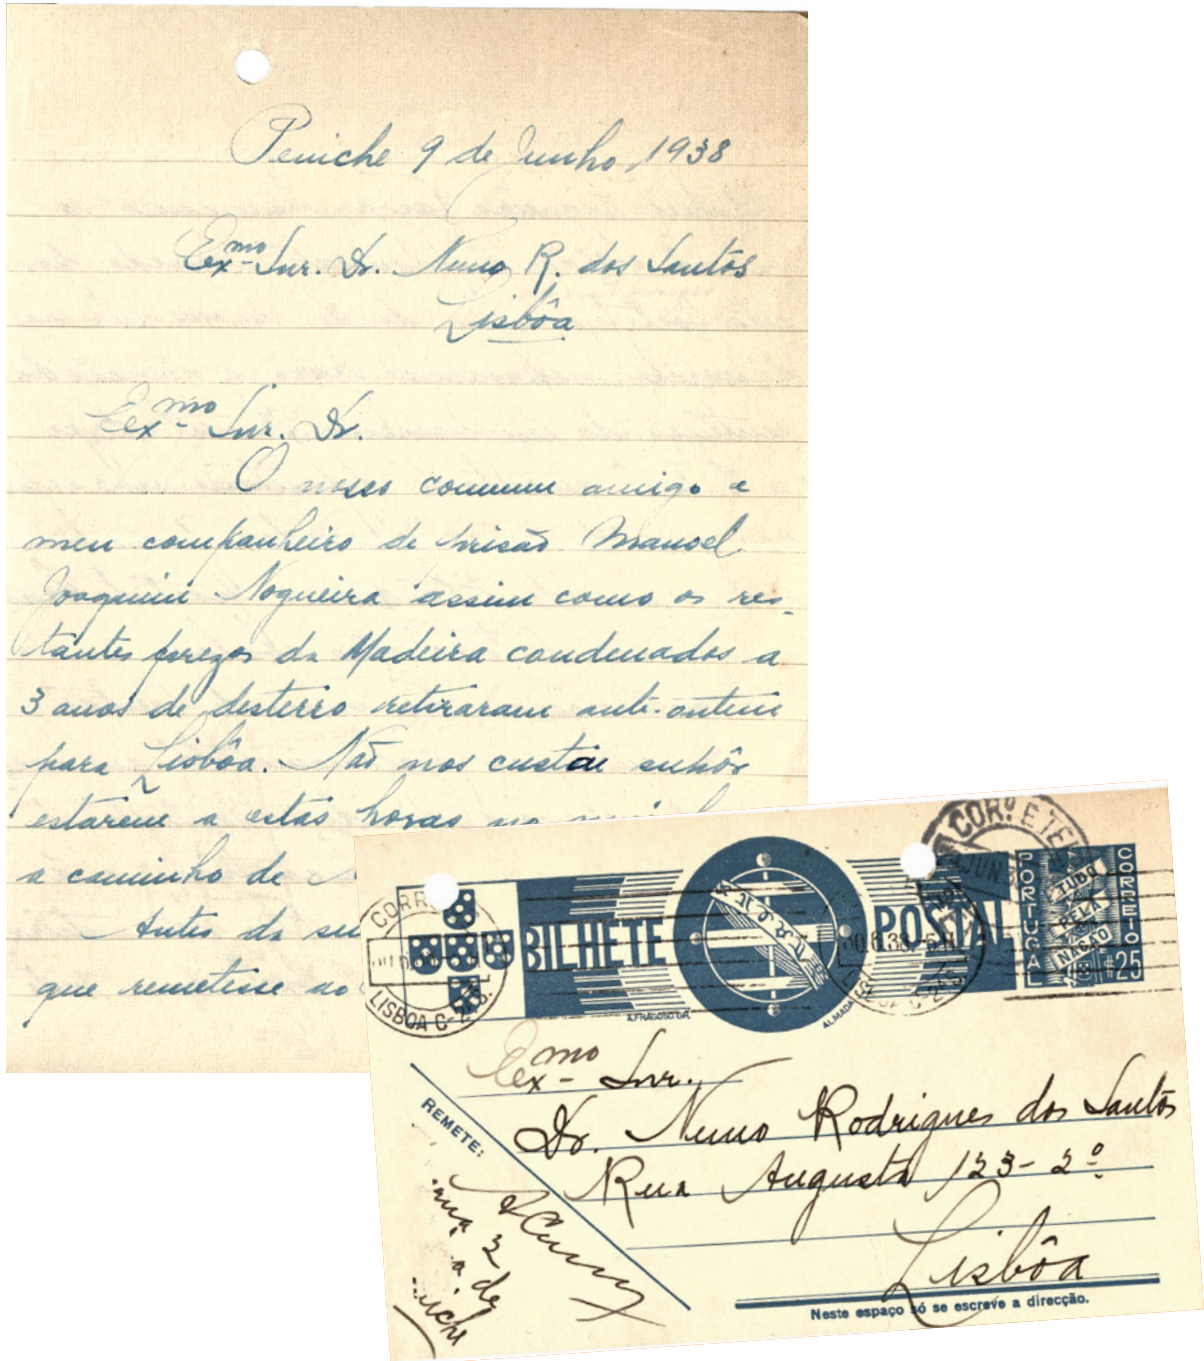 Peniche 9 de Junho, 1938
Exmo Snr. Dr. Nuno R. dos Santos
Lisbôa
Exmo Snr. Dr.
O nosso commum amigo e
meu companheiro de prisão Manoel
Joaquim Nogueira assim como os res-
tantes prezos da Madeira condenados a
3 anos de desterro retiraram anti-ontem
para Lisbôa. Não nos custou supôr
estarem a estas horas no
a caminho de
Antes da su
que remetesse ao
CORR
LISBOA C-
BILHETE POSTAL
COR.º E TEL
JUN.38
PORTUGAL
CORREIO
TUDO
PELA
NAÇÃO
$25
A. FRAGOSO GR.
ALMADA
Exmo Snr.
Dr. Nuno Rodrigues dos Santos
Rua Augusta 123-2º
Lisbôa
REMETE:
2
de
iche
Neste espaço só se escreve a direcção.